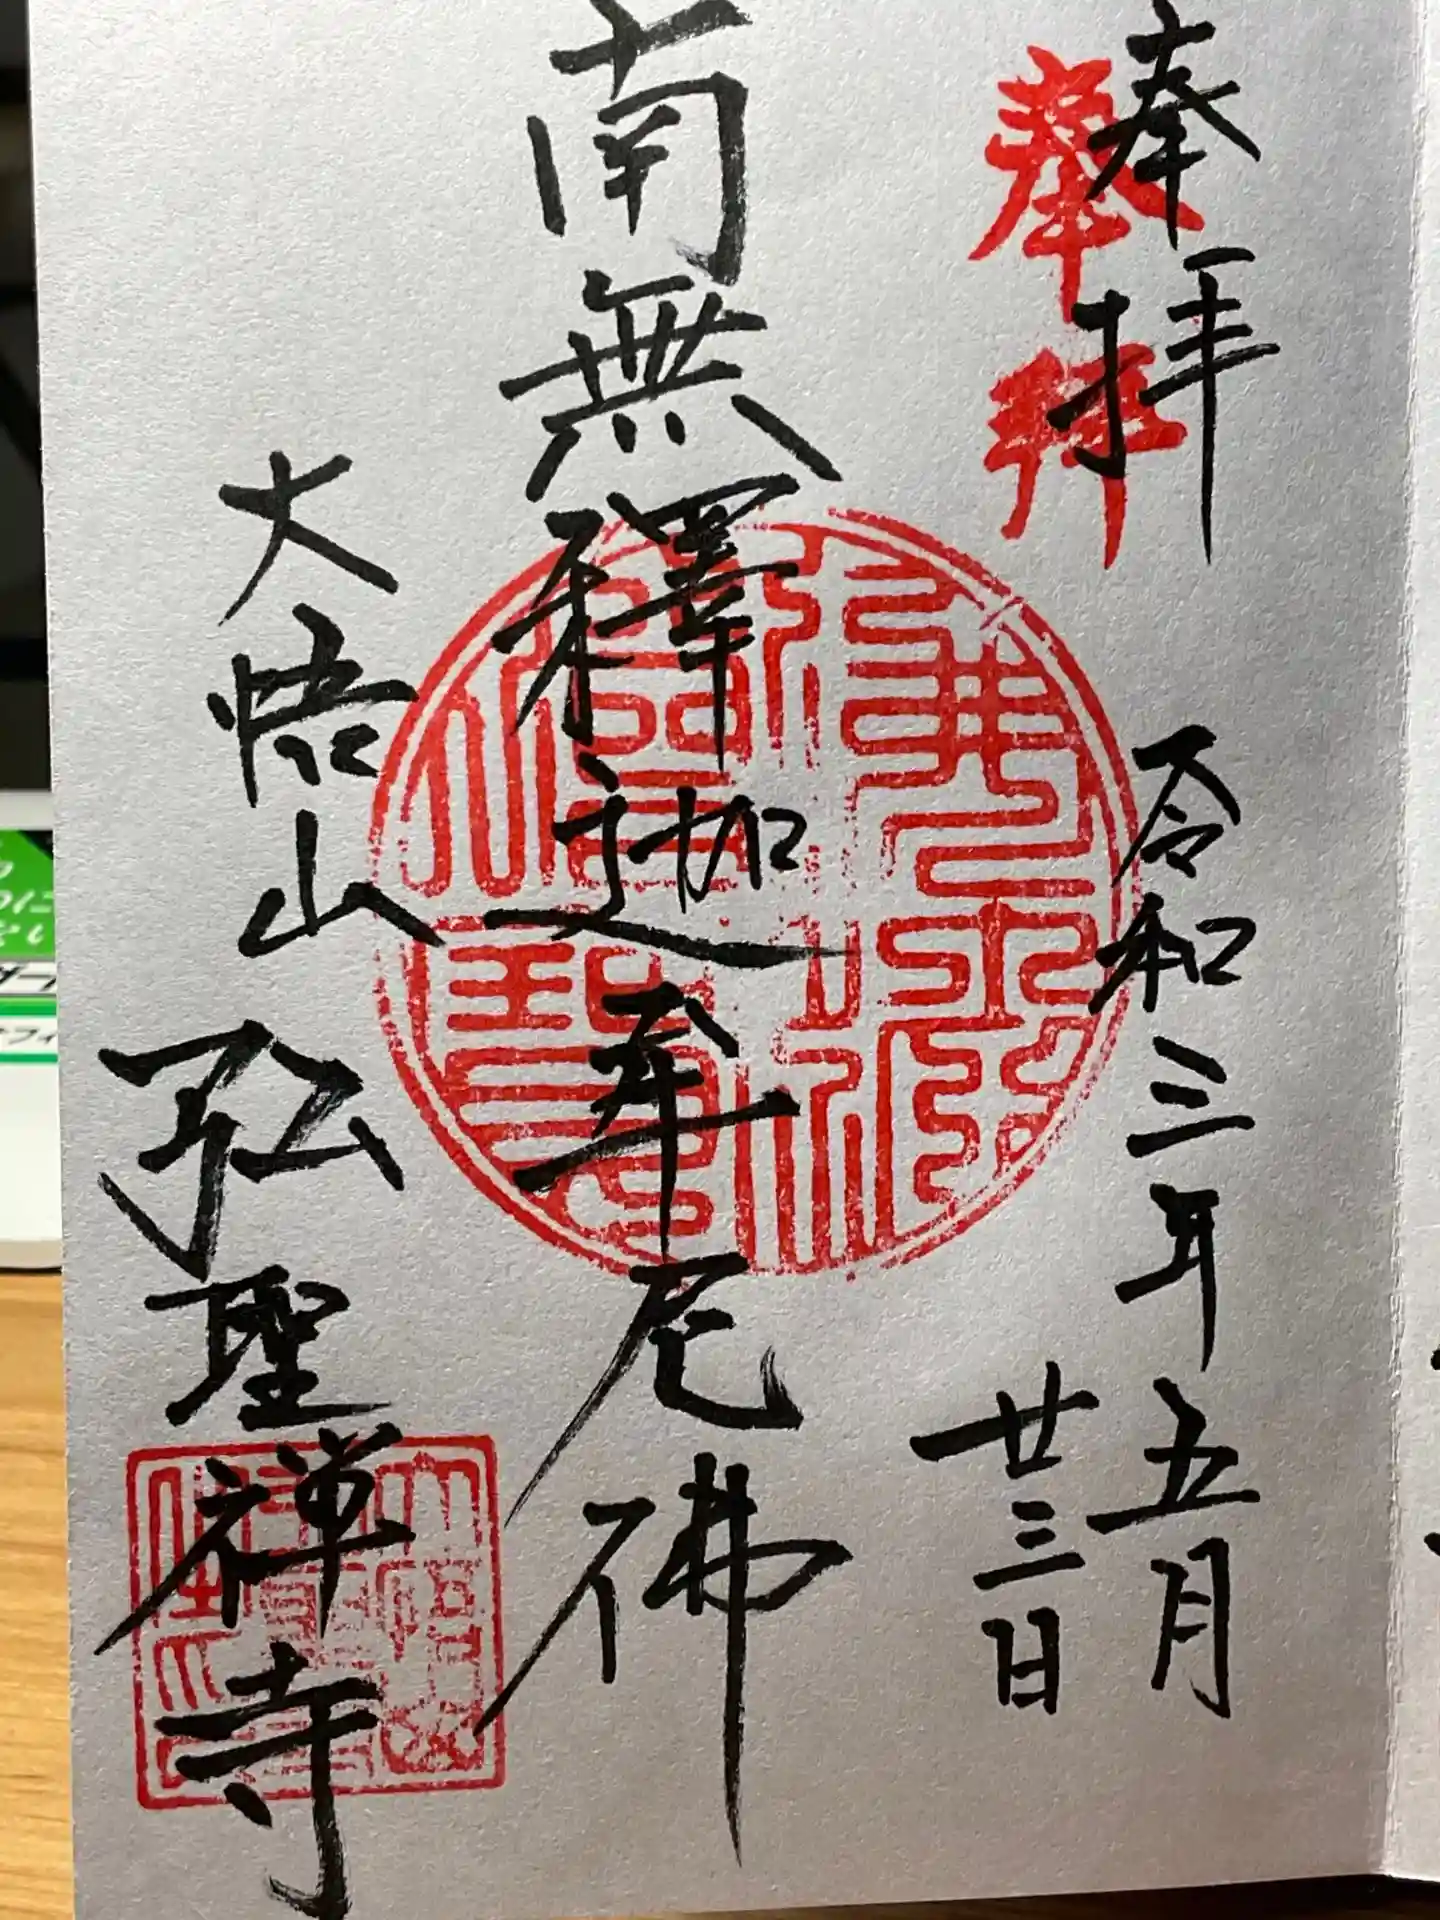 奉拝
奉拝
令和三年五月
廿三日
南無釋迦牟尼佛
佛法僧寶
大悟山
弘聖禅寺